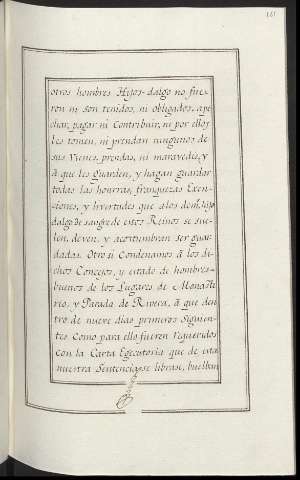 161
otros hombres Hijos-dalgo no fue-
ron ni son tenidos, ni obligados, a pe-
char, pagar ni Contribuir, ni por ellos
les tomen, ni prendan ningunos de
sus Vienes, prendas, ni maravedis, y
à que les guarden, y hagan guardar
todas las honrras, franquezas Exen-
ciones, y livertudes que a los dems. hijos
dalgo de sangre de estos Reinos se sue-
len, deven, y acostumbran ser guar-
dadas. Otro si Condenamos à los di-
chos Concejos, y estado de hombres-
buenos de los Lugares de Monaste-
rio, y Parada de Rivera, à que den-
tro de nueve dias primeros Siguien-
tes Como para ello fueren requeridos
con la Carta Egecutoria que de esta
nuestra Sentencia se librase, buelban